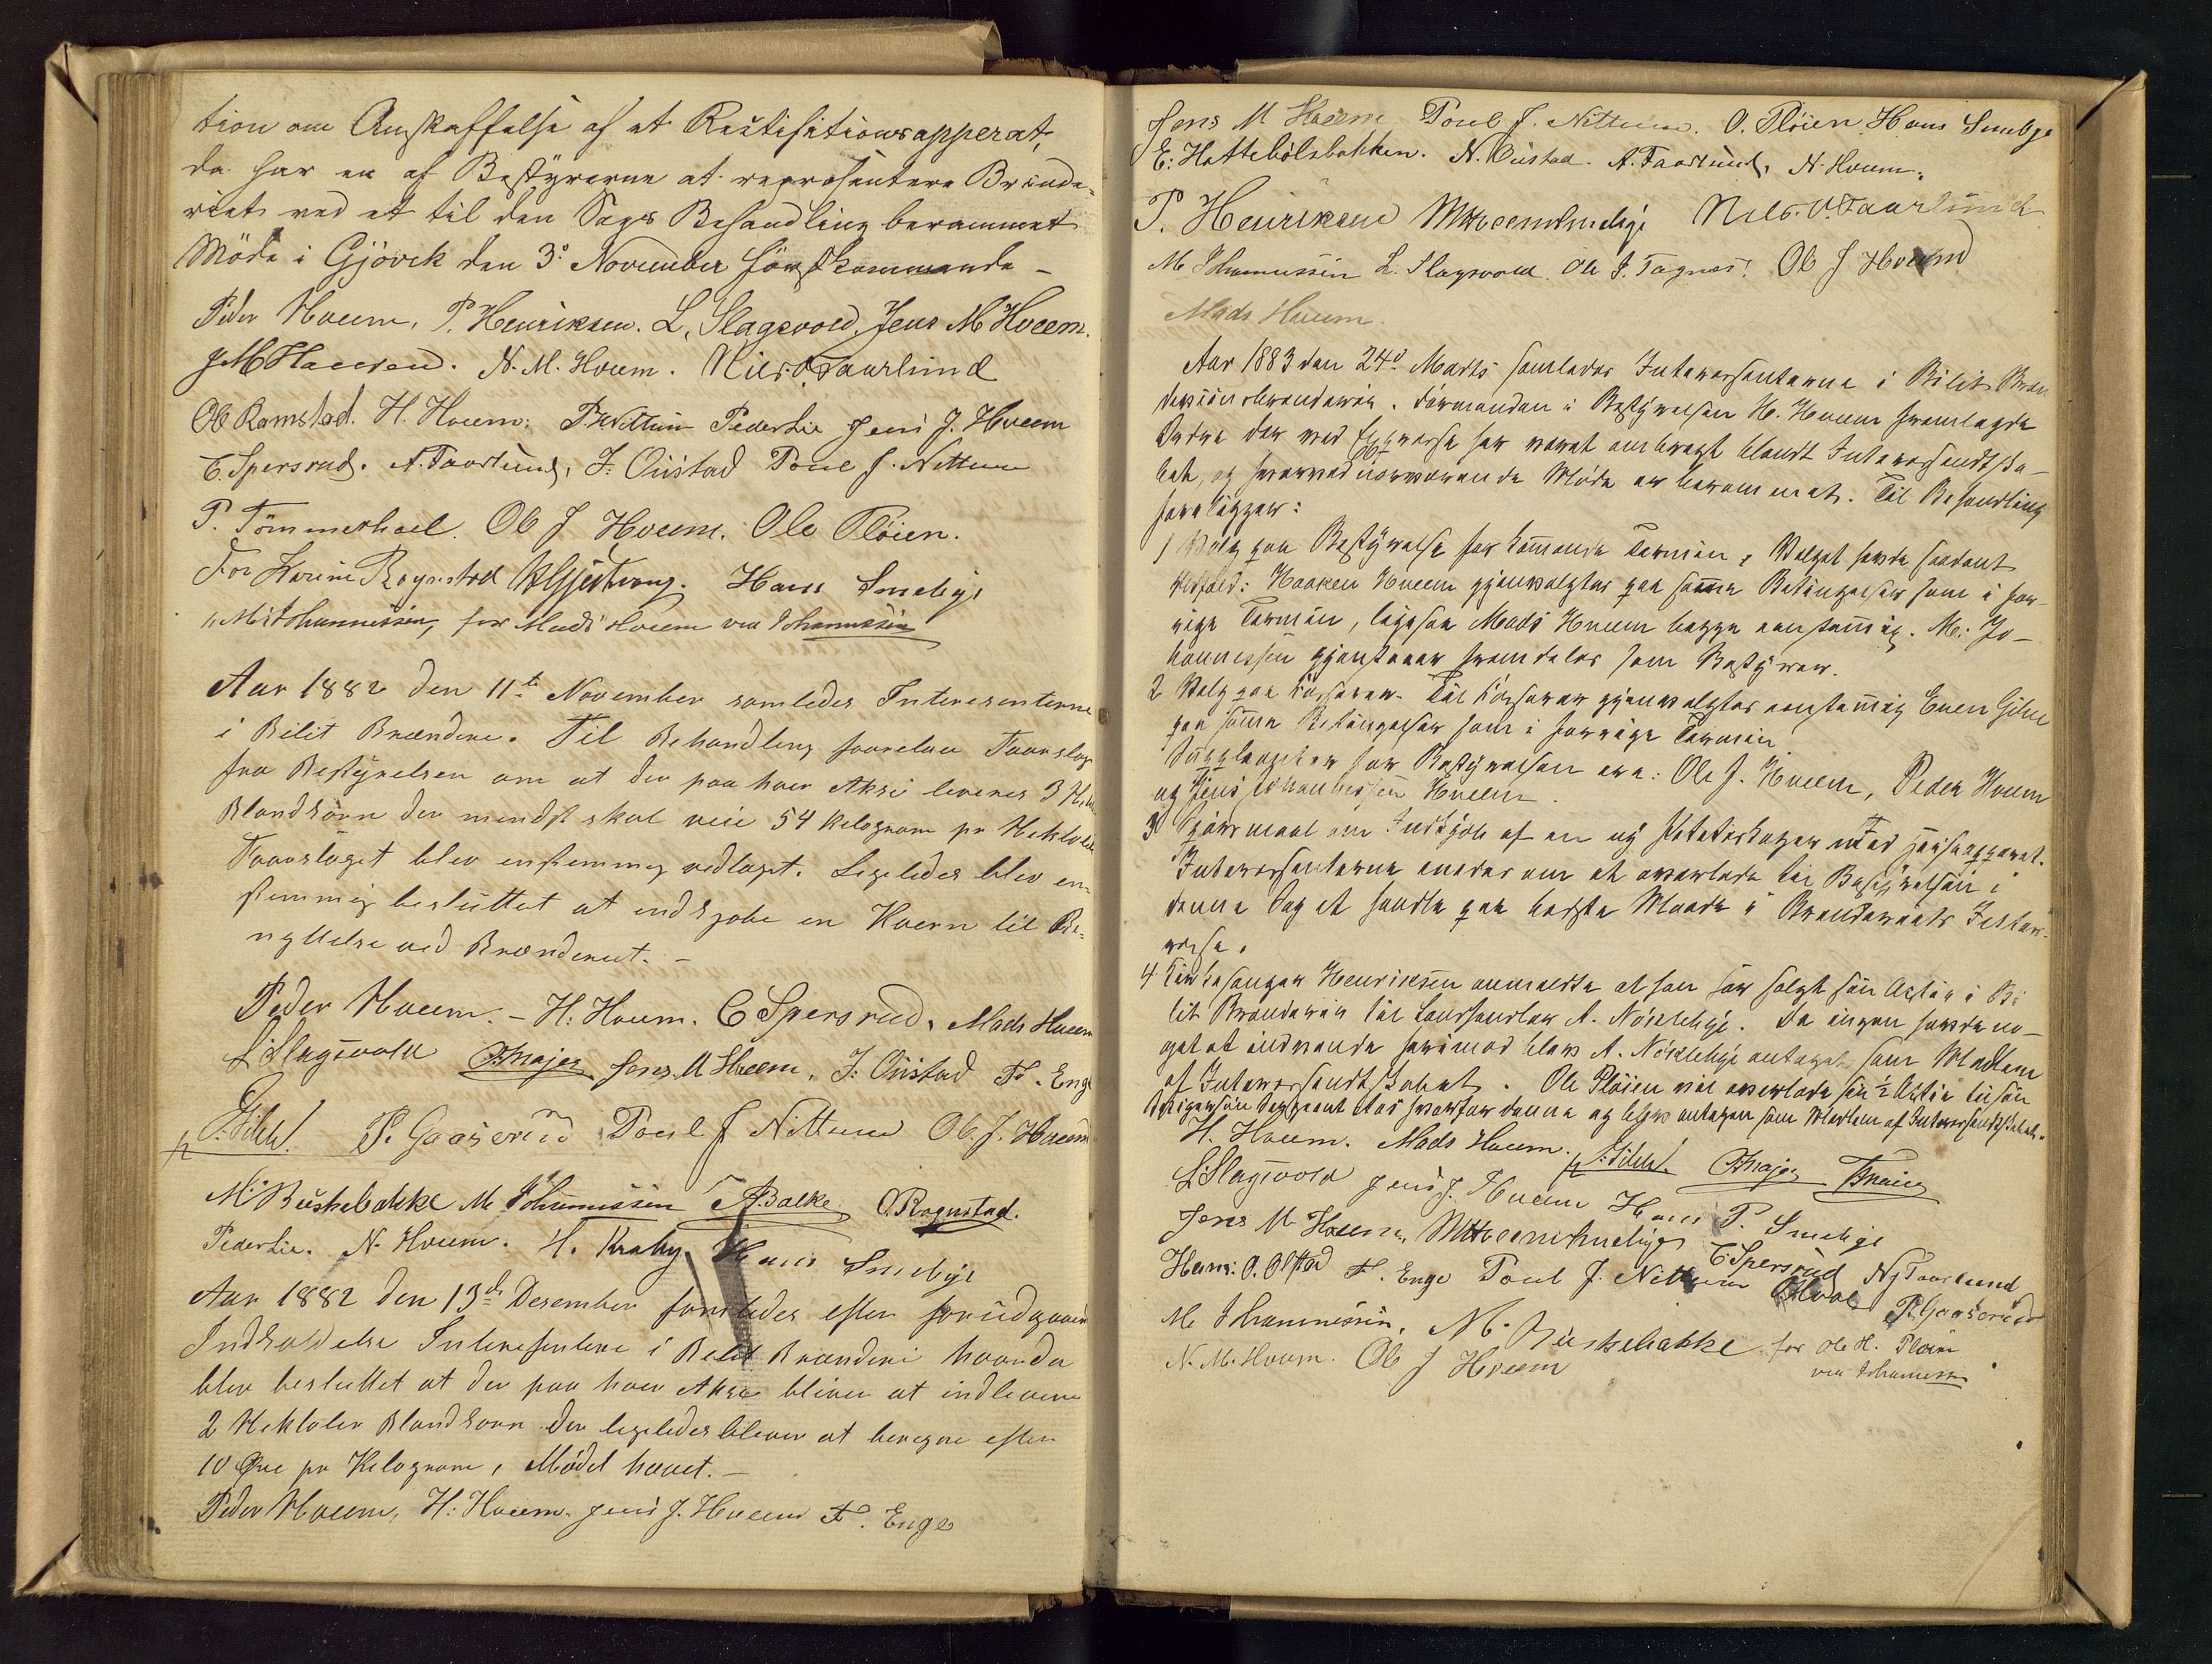 tion om Anskaffelse af et Rektifikationsapperat,
da har en af Bestyrerne at repræsentere Brænde-
riet ved et til den Sags Behandling berammet
Møde i Gjøvik den 3die November førstkommende –
Peder Hveem, P. Henriksen. L. Slagsvold, Jens M Hveem.
N. M. Hveem. Nils O. Taarlund
Ob Ramstad. H. Hveem. P. Nettum Peder Lie Jens J. Hveem
C. Spersrud. A. Taarlund, J. Oustad Poul J. Nettum
P. Tömmerhoel. Ole J Hveem. Ole Pløien.
For Karine Rognstad Hans Smebye
M. Johannessen, for Mads Hveem ved Johannessen
Aar 1882 den 11te November samledes Interesenterne
i Bilit Brænderie. Til Behandling forelaa Foreslag
fra Bestyrelsen om at der paa hver Aksie leveres 3 Hekt
Blandkorn der mindst skal veie 54 Kilogram pr Hektoliter
Foreslaget blev enstemmig vedtaget. Ligeledes blev en-
stemmig besluttet at indkjøbe en Kvern til Be-
nyttelse ved Brænderiet. –
Peder Hveem. – H. Hveem. C Spersrud. Mads Hveem
L. Slagsvold Jens M Hveem. J. Oustad F. Enge
P. Gaaserud Poul J Nettum Ob. J. Hveem
M. Buskebakke M. Johannessen A. Balke O. Rognstad.
Peder Lie. N. Hveem. H. Kraby. Hans Smebye
Aar 1882 den 13de Desember samledes efter forudgaaende
Indkaldelse Interesentere i Bilit Brænderi hvorda
blev besluttet at der paa hver Aksie bliver at indlevere
2 Hektoler Blandkorn der ligeledes bliver at beregne efter
10 Øre pr Kilogram, Mødet hævet. –
Peder Hveem, H. Hveem. Jens J. Hveem F. Enge
Jens M Hveem Poul J. Nettum. O. Pløien Hans Smebye
E. Hattebölsbakken. N. Oustad. A. Taarlund, N. Hveem.
P. Henriksen Nils O. Taarlund
M Johannessen L. Slagsvold. Ole J. Ob J Hveem
Mads Hveem.
Aar 1883 den 24de Marts samledes Interessenterne i Bilit Bræn
devinsbrænderie. Formanden i Bestyrelsen H. Hveem fremlagde
Ordre der ved Expresse har været ombragt blandt Interessentska-
bet, og hvorved nærværende Møde er berammet. Til Behandling
foreligger:
1 Valg paa Bestyrelse for kommende Termin, Valget havde saadant
Udfald: Haaken Hveem gjenvalgtes paa samme Betingelser som i for-
rige Termin, ligesaa Mads Hveem begge enstemmig. M: Jo-
hannessen gjenstaaer fremdeles som Bestyrer.
2 Valg paa Kasserer. Til Kasserer gjenvalgtes enstemmig Even Gihle
paa samme Betingelser som i forrige Termin.
Suppleanter for Bestyrelsen ere: Ole J. Hveem, Peder Hveem
og Jens Johannessen Hveem.
3 Spørsmaal om Indkjøb af en ny Poteteskoger med
Interessenterne enedes om at overlade til Bestyrelsen i
denne Sag at handle paa bedste Maade i Brænderiets Inter-
esse.
4 Kirkesanger Henriksen anmeldte at han har solgt sin Actie i Bi
lit Brænderie til Landhandler A. Nöklebye. Da ingen havde no-
get at indvende herimod blev A. Nöklebye antaget som Medlem
af Interessentskabet. Ole Pløien vil overlade sin ½ Actie til sin
denne og blev antagen som Medlem af Interessentskabet.
H. Hveem. Mads Hveem.
L. Slagsvold Jens J. Hveem Hans P. Smebye
Jens M Hveem, C Spersrud N. Taarlund
Hans. O. Olstad F. Enge Poul J. Nettum P. Gaaserud
M Johannessen. M. Buskebakke for Ole H. Pløien
N. M. Hveem. Ob J Hveem ved Johannessen